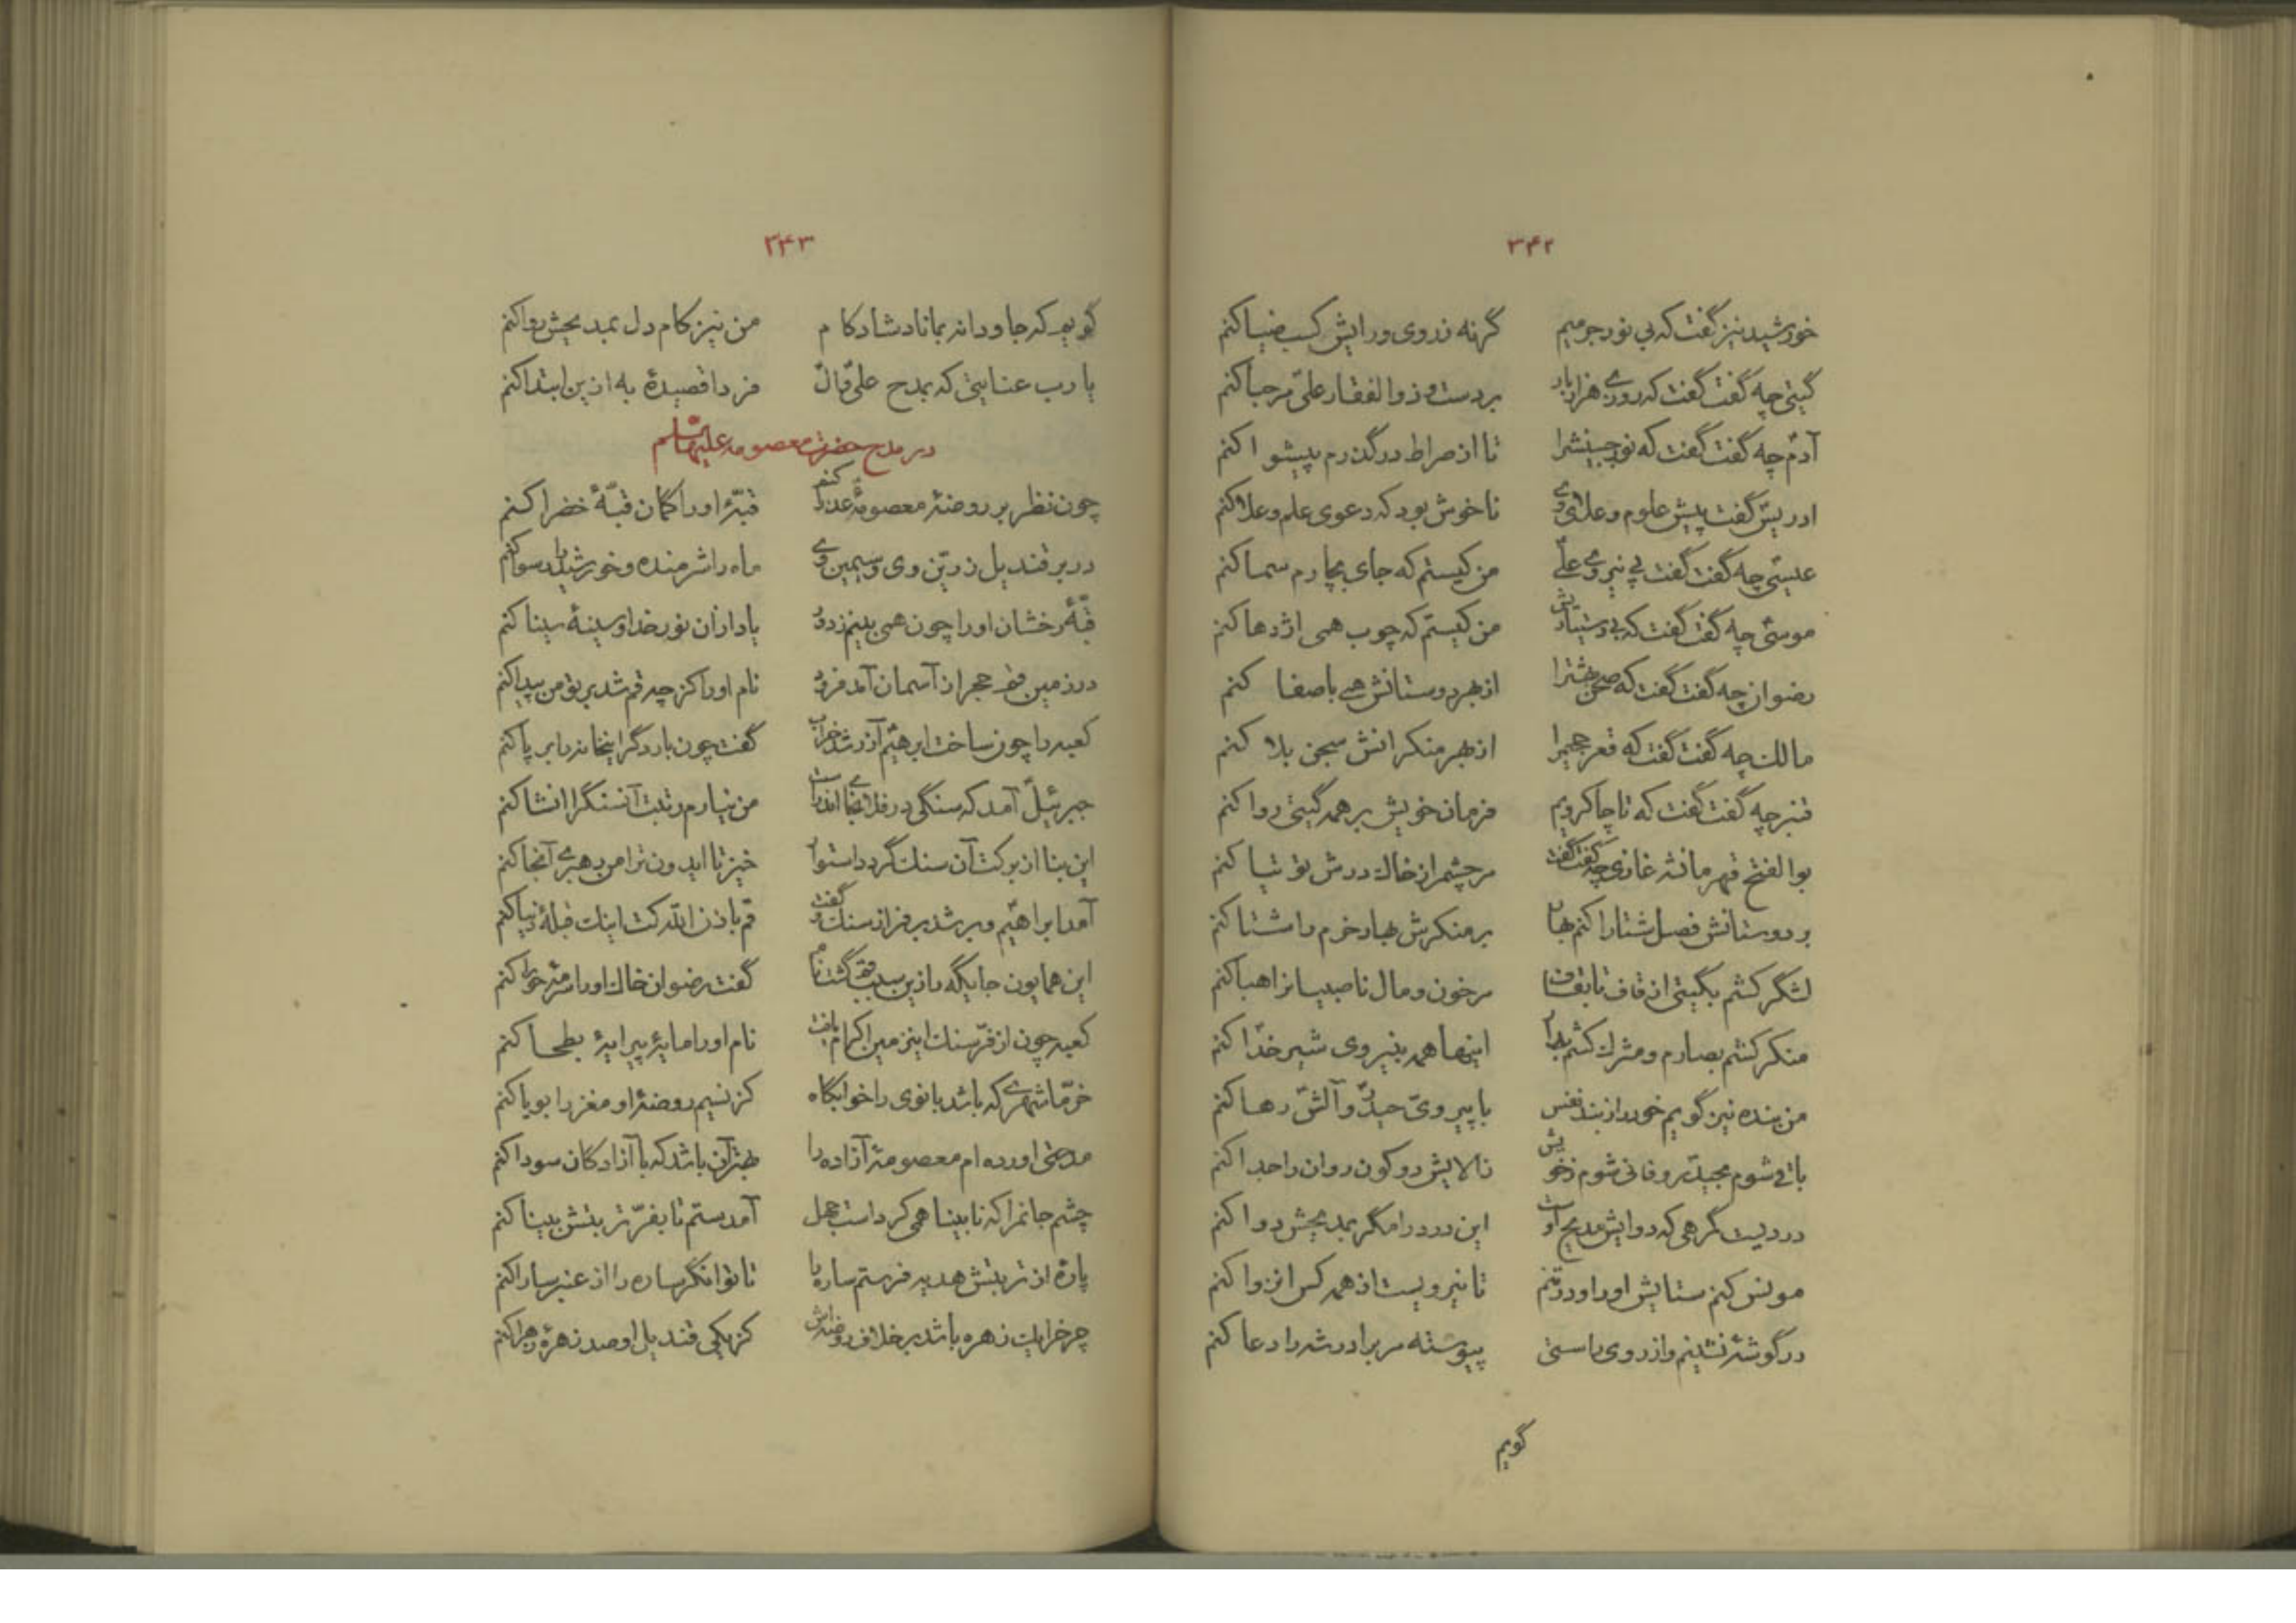 ۳۴۲
خورشید نیز گفت که بی نور جرمیم گر نه ز روی و رایش کسب ضیا کنم
گیتی چه گفت گفت که روزی هزار بار بر دست و ذوالفقار علی مرحبا کنم
آدم چه گفت گفت که نور جبینش را تا از صراط درگذرم پیشوا کنم
ادریس گفت پیش علوم و علای وی ناخوش بود که دعوی علم و علا کنم
عیسی چه گفت گفت بی نیروی علی من کیستم که جای بچارم سما کنم
موسی چه گفت گفت که بی من کیستم که چوب همی اژدها کنم
رضوان چه گفت گفت که صحن بهشترا از بهر دوستانش همی باصفا کنم
مالک چه گفت گفت که قعر جحیم را از بهر منکرانش سجن بلا کنم
قنبر چه گفت گفت که تا چاکر ویم فرمان خویش بر همه گیتی روا کنم
بوالفتح قهرمانشه غازی چه گفت گفت مر چشم از خاک درش توتیا کنم
بر دوستانش فصل شتا را کنم بهار بر منکرش بهار خرم را شتا کنم
لشگر کشم بگیتی از قاف تا بقاف مر خون و مال ناصبیانرا هبا کنم
منکر کشم بصارم و مشرک کشم اینها همه بنیروی شیر خدا کنم
من بنده نیز گویم خود را ز بند نفس با پیروی حیدر و آلش رها کنم
باقی شوم بحیدر و فانی شوم ز خویش زالایش دو کون روان را جدا کنم
دردیست گمرهی که دوایش مدیح اوست این درد را مگر بمدیحش دوا کنم
مونس کنم ستایش او را و در تنم تا نیرویست از همه کس انزوا کنم
در گوشهٔ نشینم و از روی راستی پیوسته مر برادر شه را دعا کنم
گویم
۳۴۳
گویم که جاودانه بماناد شادکام من نیز کام دل بمدیحش روا کنم
یا رب عنایتی که بمدح علی و آل فردا قصیدهٔ به ازین ابتدا کنم
در مدح حضرت معصومه علیها سلم
چون نظر بر روضهٔ معصومهٔ عذرا کنم قبّهٔ او را گمان قبّهٔ خضرا کنم
در بر قندیل زرّین وی و سیمین وی ماه را شرمنده و خورشید را رسوا کنم
قبّهٔ رخشان او را چون همی بینم ز دور یاد از آن نور خدا و سینهٔ سینا کنم
در زمین قم حجر از آسمان آمد فرود نام او را کز چه قم شد بر تو من پیدا کنم
کعبه را چون ساخت ابرهیم آزر شد خراب گفت چون بار دگر اینخانه را بر پا کنم
جبرئیل آمد که سنگی در فلان اندر است من نیارم رتبت آنسنگ را انشا کنم
این بنا از برکت آن سنک گردد استوار خیز تا ایدون ترا من رهبری آنجا کنم
آمد ابراهیم و بر شد بر فراز سنک و گفت قم باذن الله کت اینک قبلهٔ دنیا کنم
این همایون جایگه را زین سبب قم گشت نام گفت رضوان خاک او را سرمهٔ حورا کنم
کعبه چون از فرّ سنک اینزمین اکرام یافت نام او را مایهٔ پیرایهٔ بطحا کنم
خرّما شهری که باشد بانوی را خوابگاه کز نسیم روضهٔ او مغز را بویا کنم
مدحتی آورده ام معصومهٔ آزاده را بهتر آن باشد که با آزادگان سودا کنم
چشم جانمرا که نابینا همی کرداست جهل آمدستم تا بفرّ تربتش بینا کنم
پارهٔ از تربتش هدیه فرستم ساره را تا توانگر ساره را از عنبر سارا کنم
چرخ را یک زهره باشد بر خلاف روضه‌اش کز یکی قندیل او صد زهرهٔ زهرا کنم